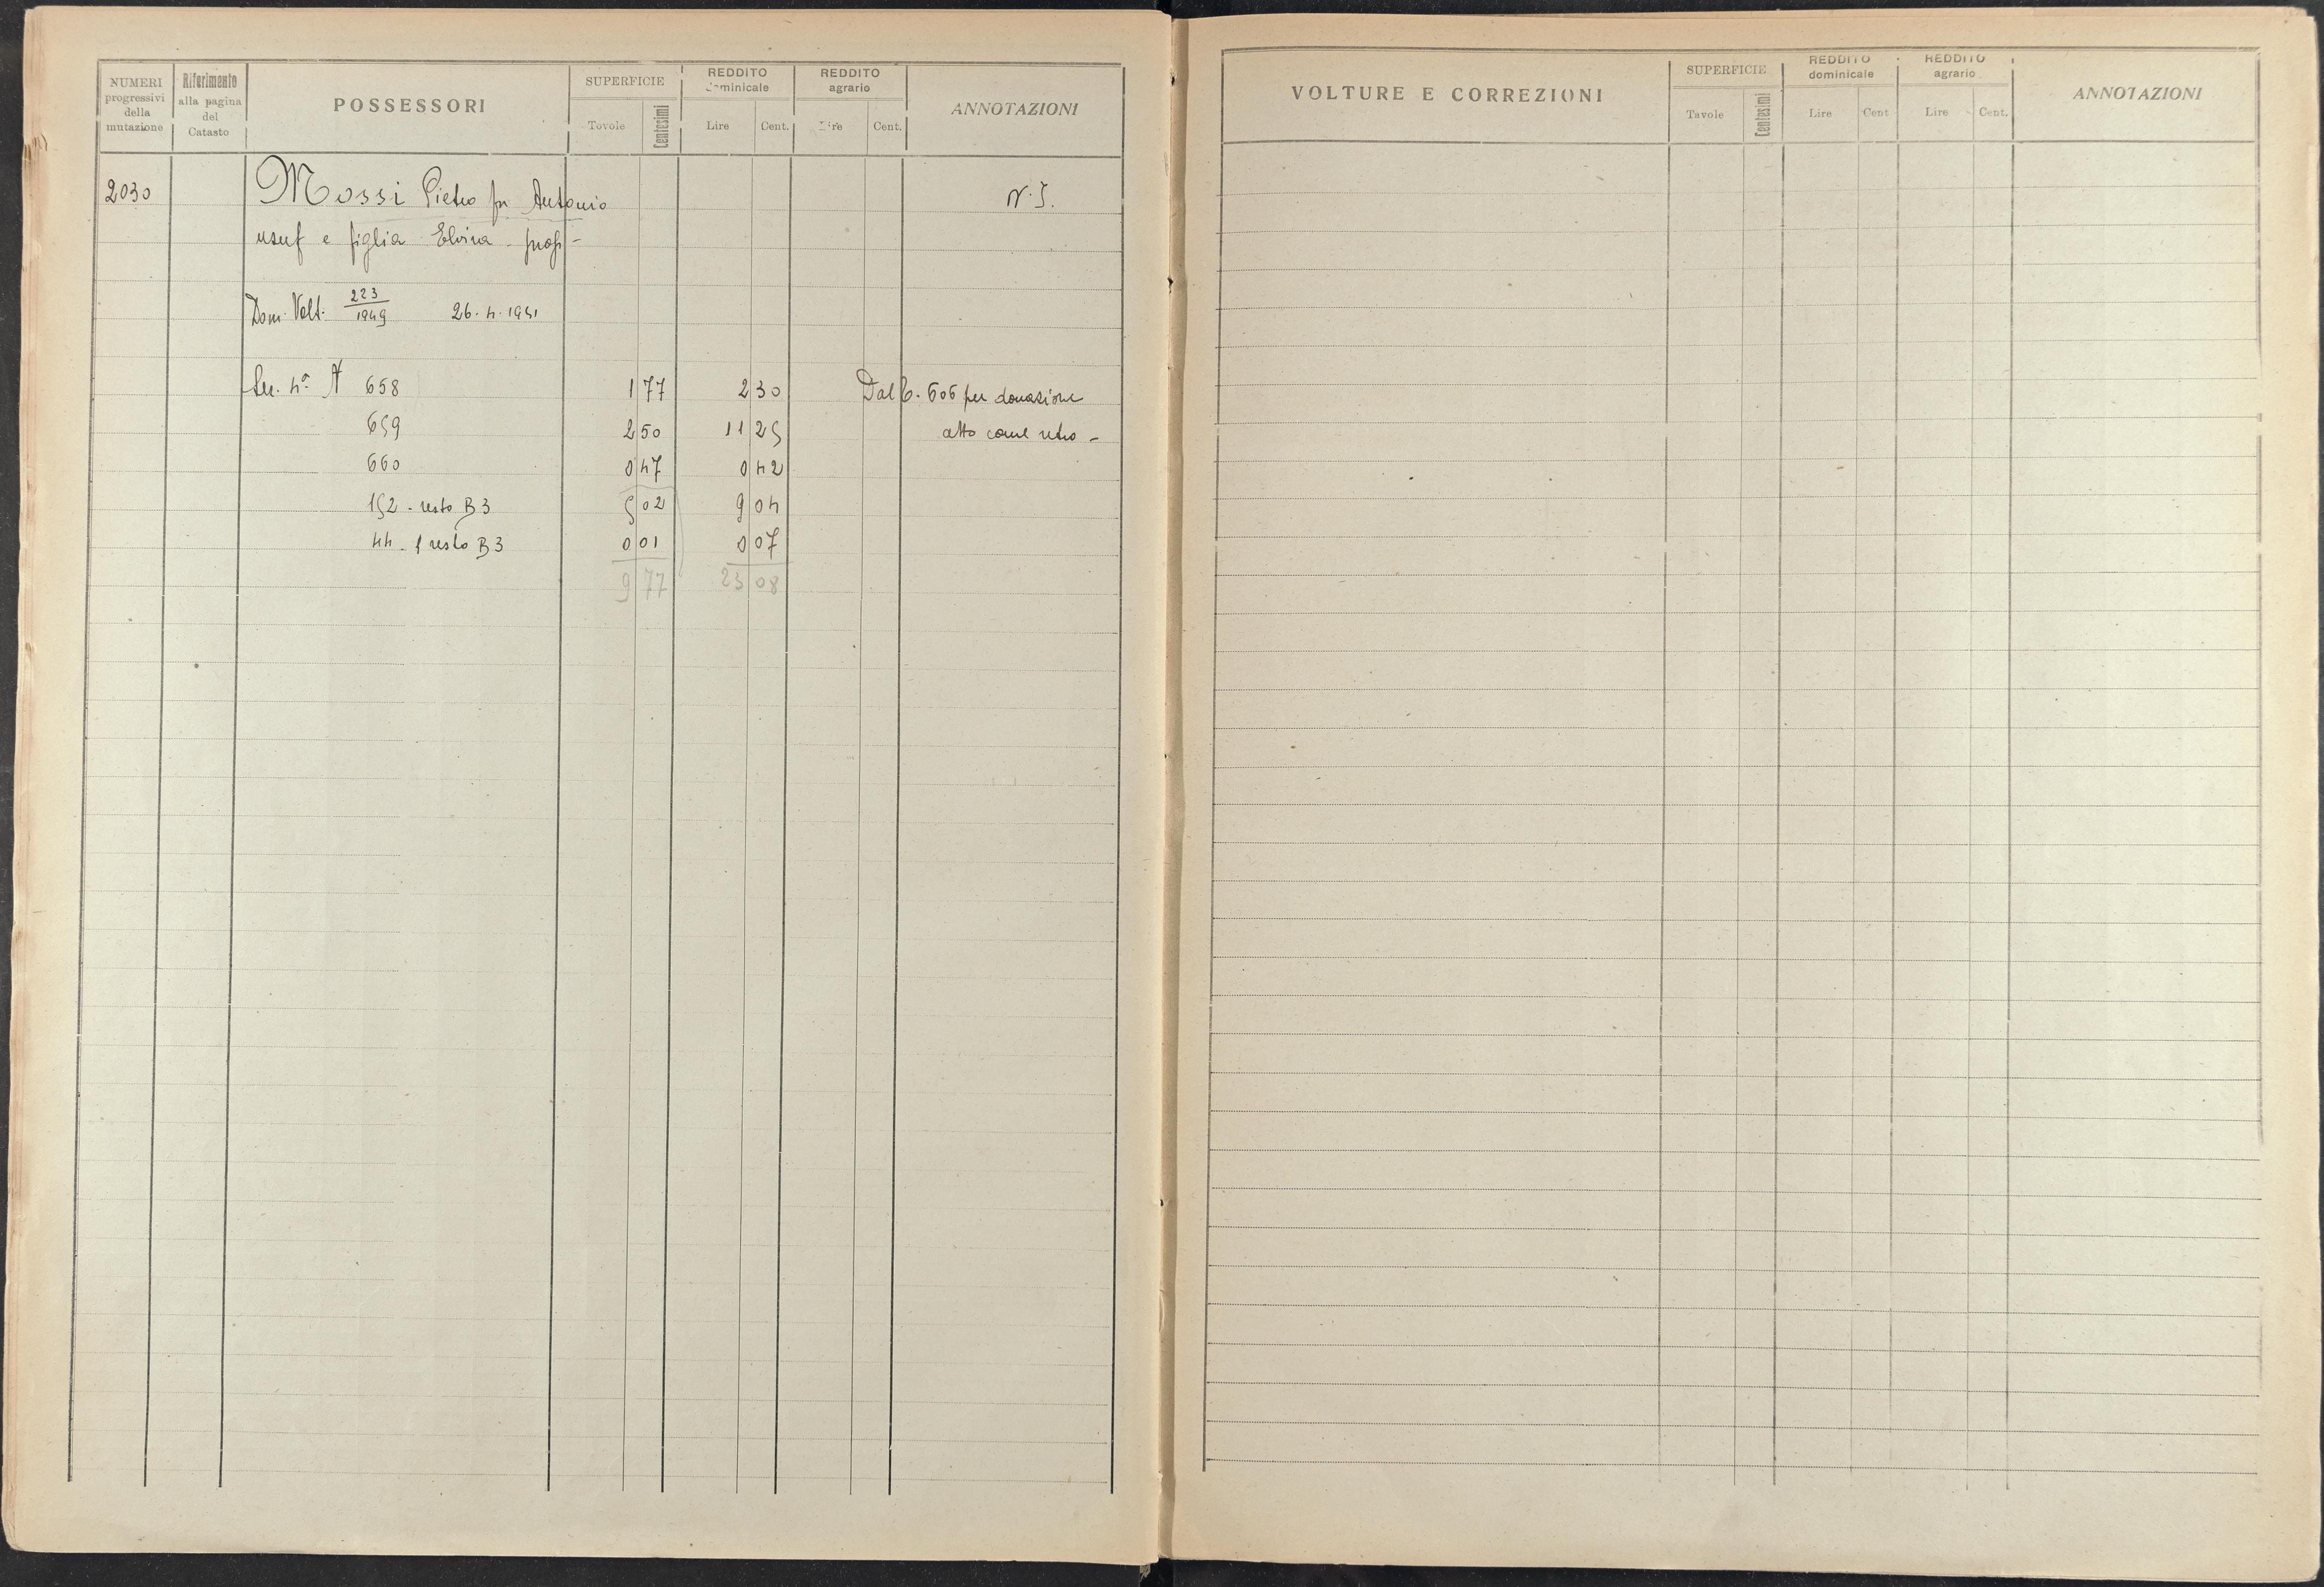 NUMERI progressivi della mutazione
Riferimento alla pagina del Catasto
POSSESSORI
SUPERFICIE
Tavole
Centesimi
REDDITO dominicale
Lire
Cent.
REDDITO agrario
Lire
Cent.
ANNOTAZIONI
2030 Mossi Pietro fu Antonio N.I.
usuf e figlia Elvira prop -
Dom. Volt. 223/1949 26.4.1951
Ser. nº A 658 1 77 2 30 Dal C. 606 per donazione
659 2 50 11 25 atto come retro -
660 0 47 0 42
152 - resto B3 5 02 9 04
44 - 1 resto B3 0 01 0 07
9 77 23 08
VOLTURE E CORREZIONI
SUPERFICIE
Tavole
Centesimi
REDDITO dominicale
Lire
Cent
REDDITO agrario
Lire
Cent.
ANNOTAZIONI